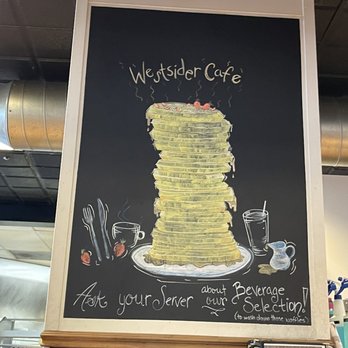 Westsider Cafe
Ask your Server about our Beverage Selection!
(to wash down those waffles)